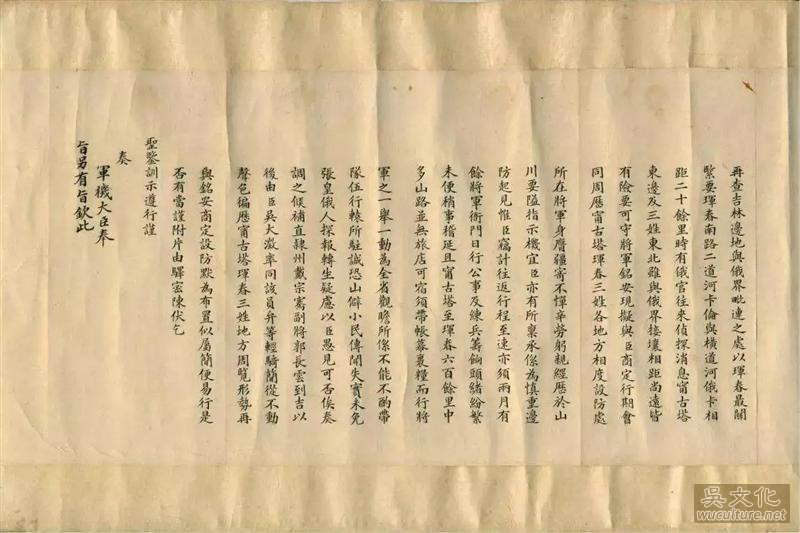 再查吉林邊地與俄界毗連之處以琿春最關
緊要琿春南路二道河卡倫與橫道河俄卡相
距二十餘里時有俄官往來偵探消息甯古塔
東邊及三姓東北雖與俄界接壤相距尚遠皆
有險要可守將軍銘安現擬與臣商定行期會
同周歷甯古塔琿春三姓各地方相度設防處
所在將軍身膺疆寄不憚辛勞躬親經歷於山
川要隘指示機宜臣亦有所稟承係為慎重邊
防起見惟臣竊計往返行程至速亦須兩月有
餘將軍衙門日行公事及練兵籌餉頭緒紛繁
未便稍事稽延且甯古塔至琿春六百餘里中
多山路並無旅店可宿須帶帳幕裹糧而行將
軍之一舉一動為全省觀瞻所係不能不酌帶
隊伍行轅所駐誠恐山僻小民傳聞失實未免
張皇俄人探報轉生疑慮以臣愚見可否俟奏
調之候補直隸州戴宗騫副將郭長雲到吉以
後由臣吳大澂率同該員弁等輕騎簡從不動
聲色徧歷甯古塔琿春三姓地方周覽形勢再
與銘安商定設防默為布置似屬簡便易行是
否有當謹附片由驛密陳伏乞
聖鑒訓示遵行謹
奏
軍機大臣奉
旨另有旨欽此
吳文化
www.wuculture.net